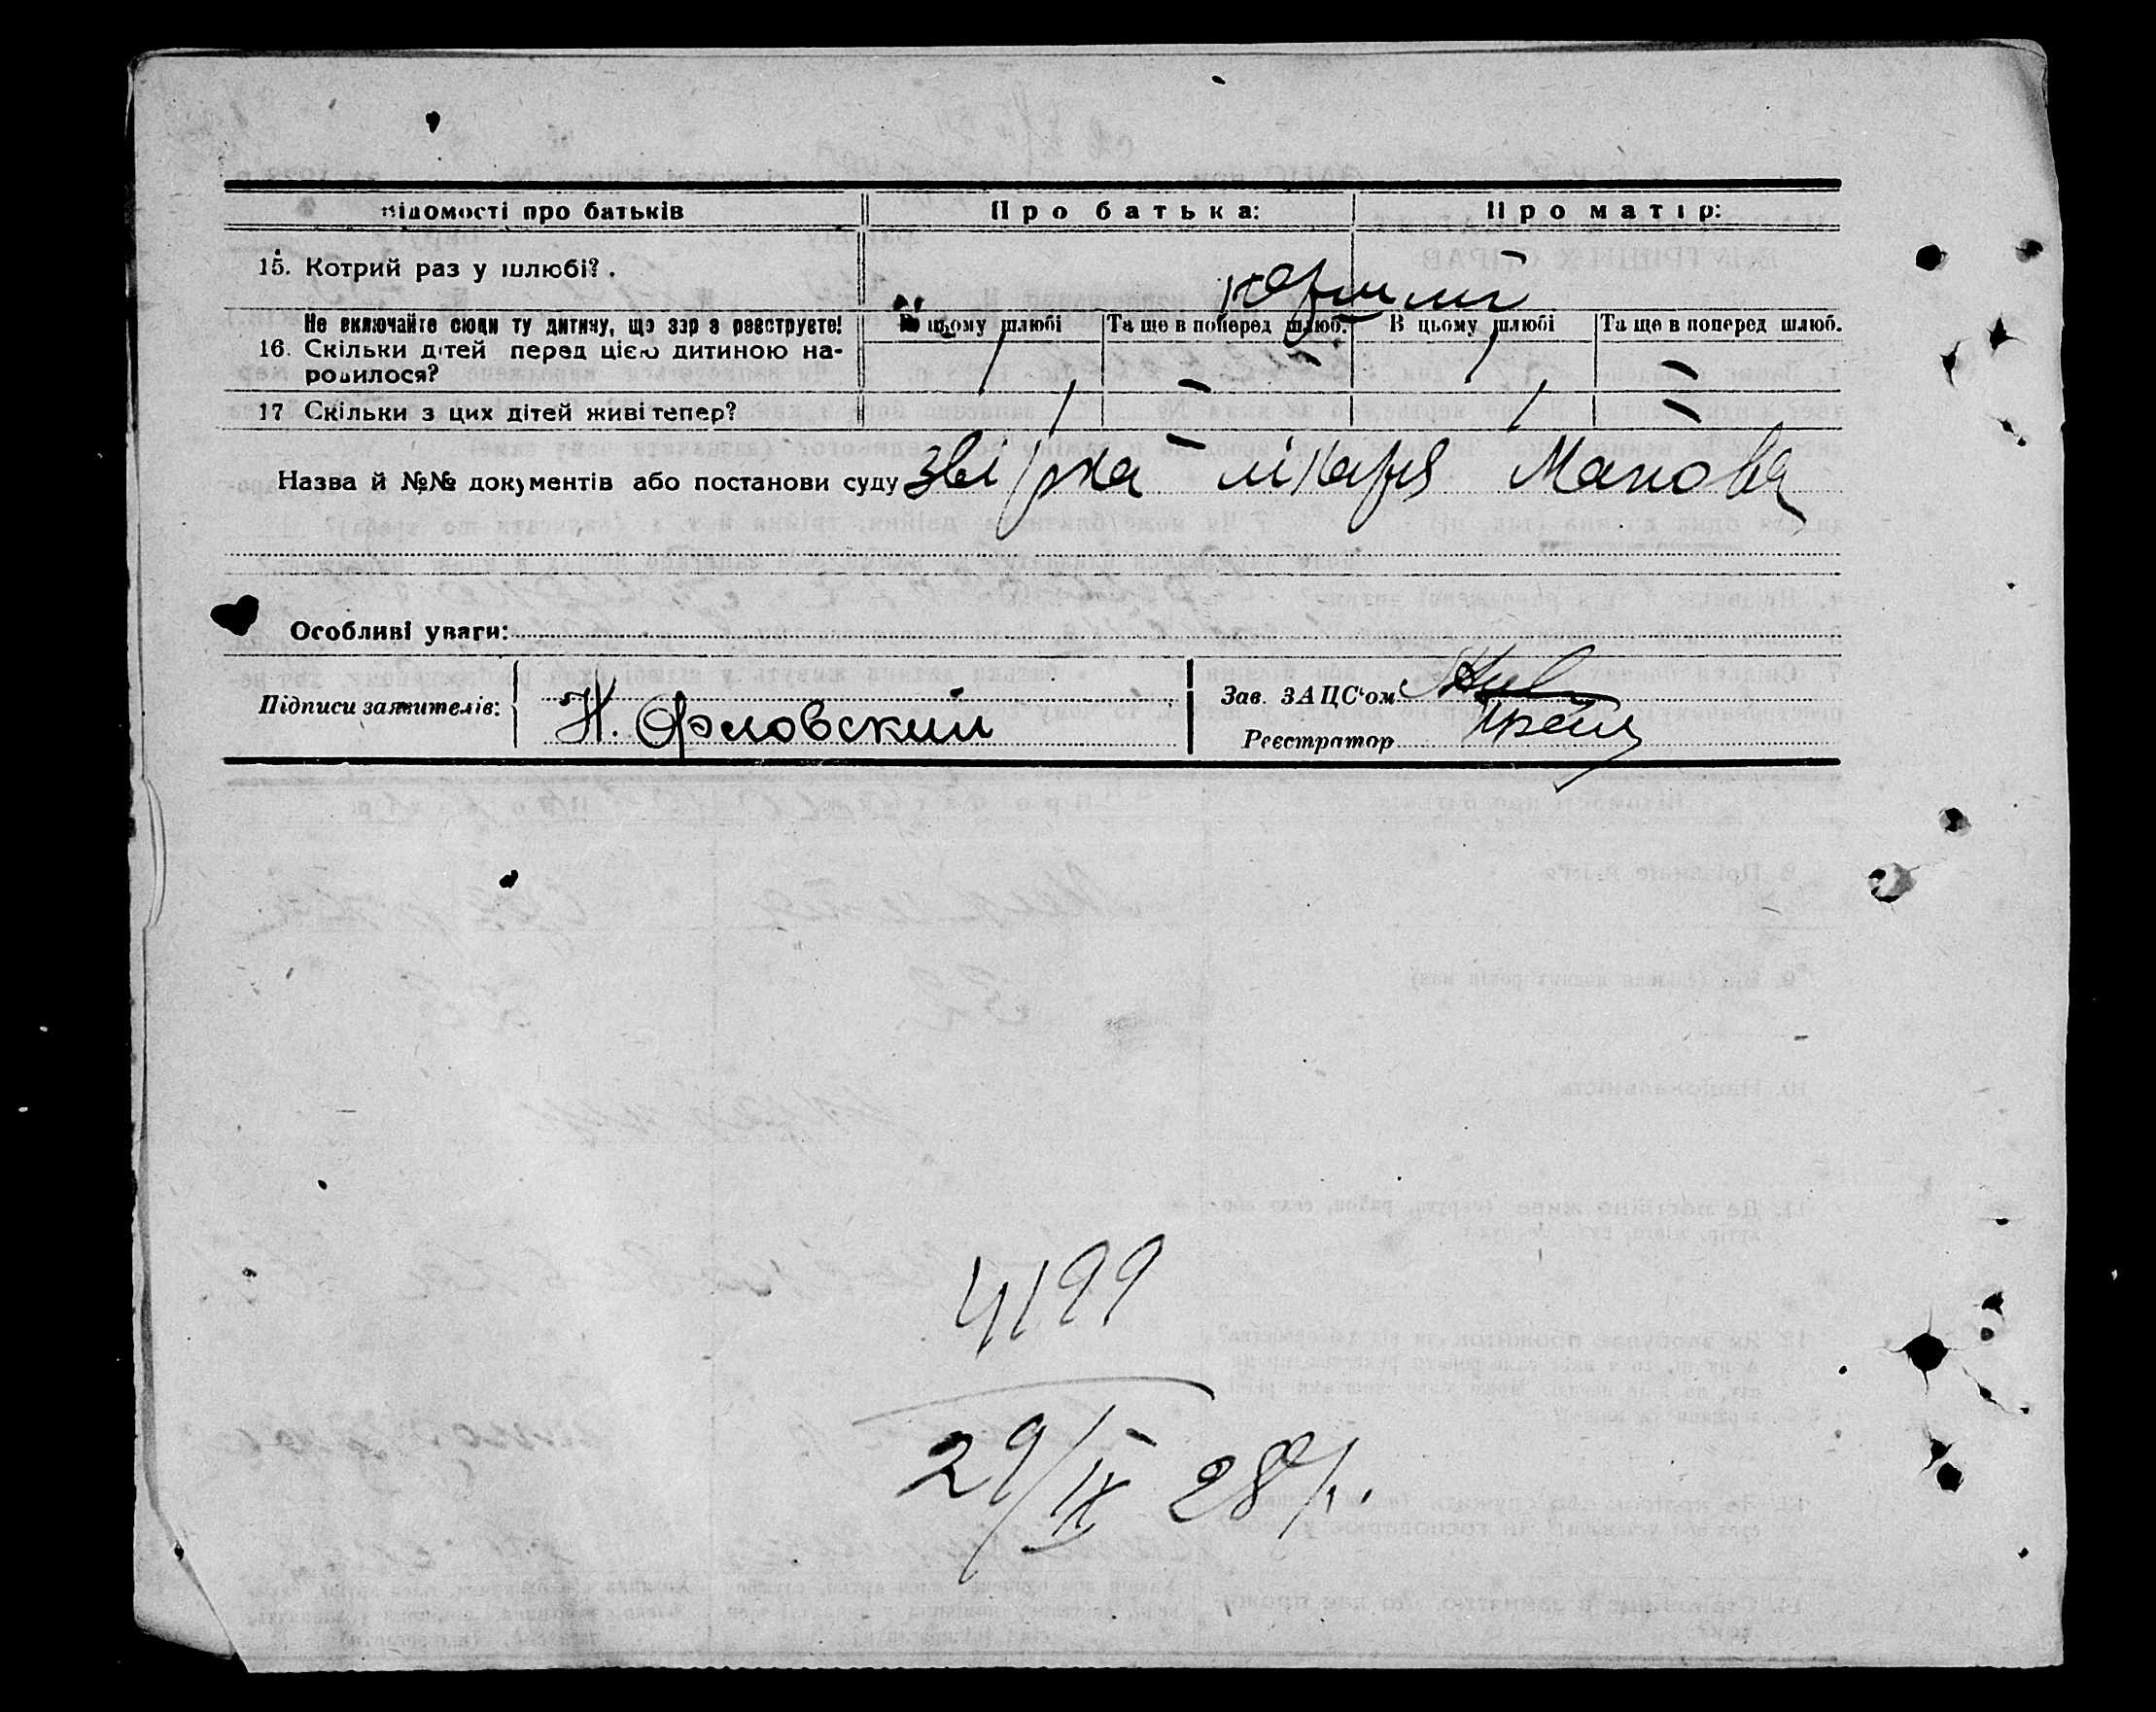 Відомості про батьків Про батька: Про матір:
15. Котрий раз у шлюбі?.
Не включайте сюди ту дитину, що зараз реєструєте! В цьому шлюбі Та ще в поперед шлюб. В цьому шлюбі Та ще в поперед шлюб.
16. Скільки дітей перед цією дитиною на-
родилося? 1 – 1 –
17 Скільки з цих дітей живі тепер? 1 – 1 –
Назва й №№ документів або постанови суду лікаря
Особливі уваги:
Підписи заявителів: Н. Орловский
Зав. ЗАЦС'ом
Реєстратор
4199
29/IX 28 р.